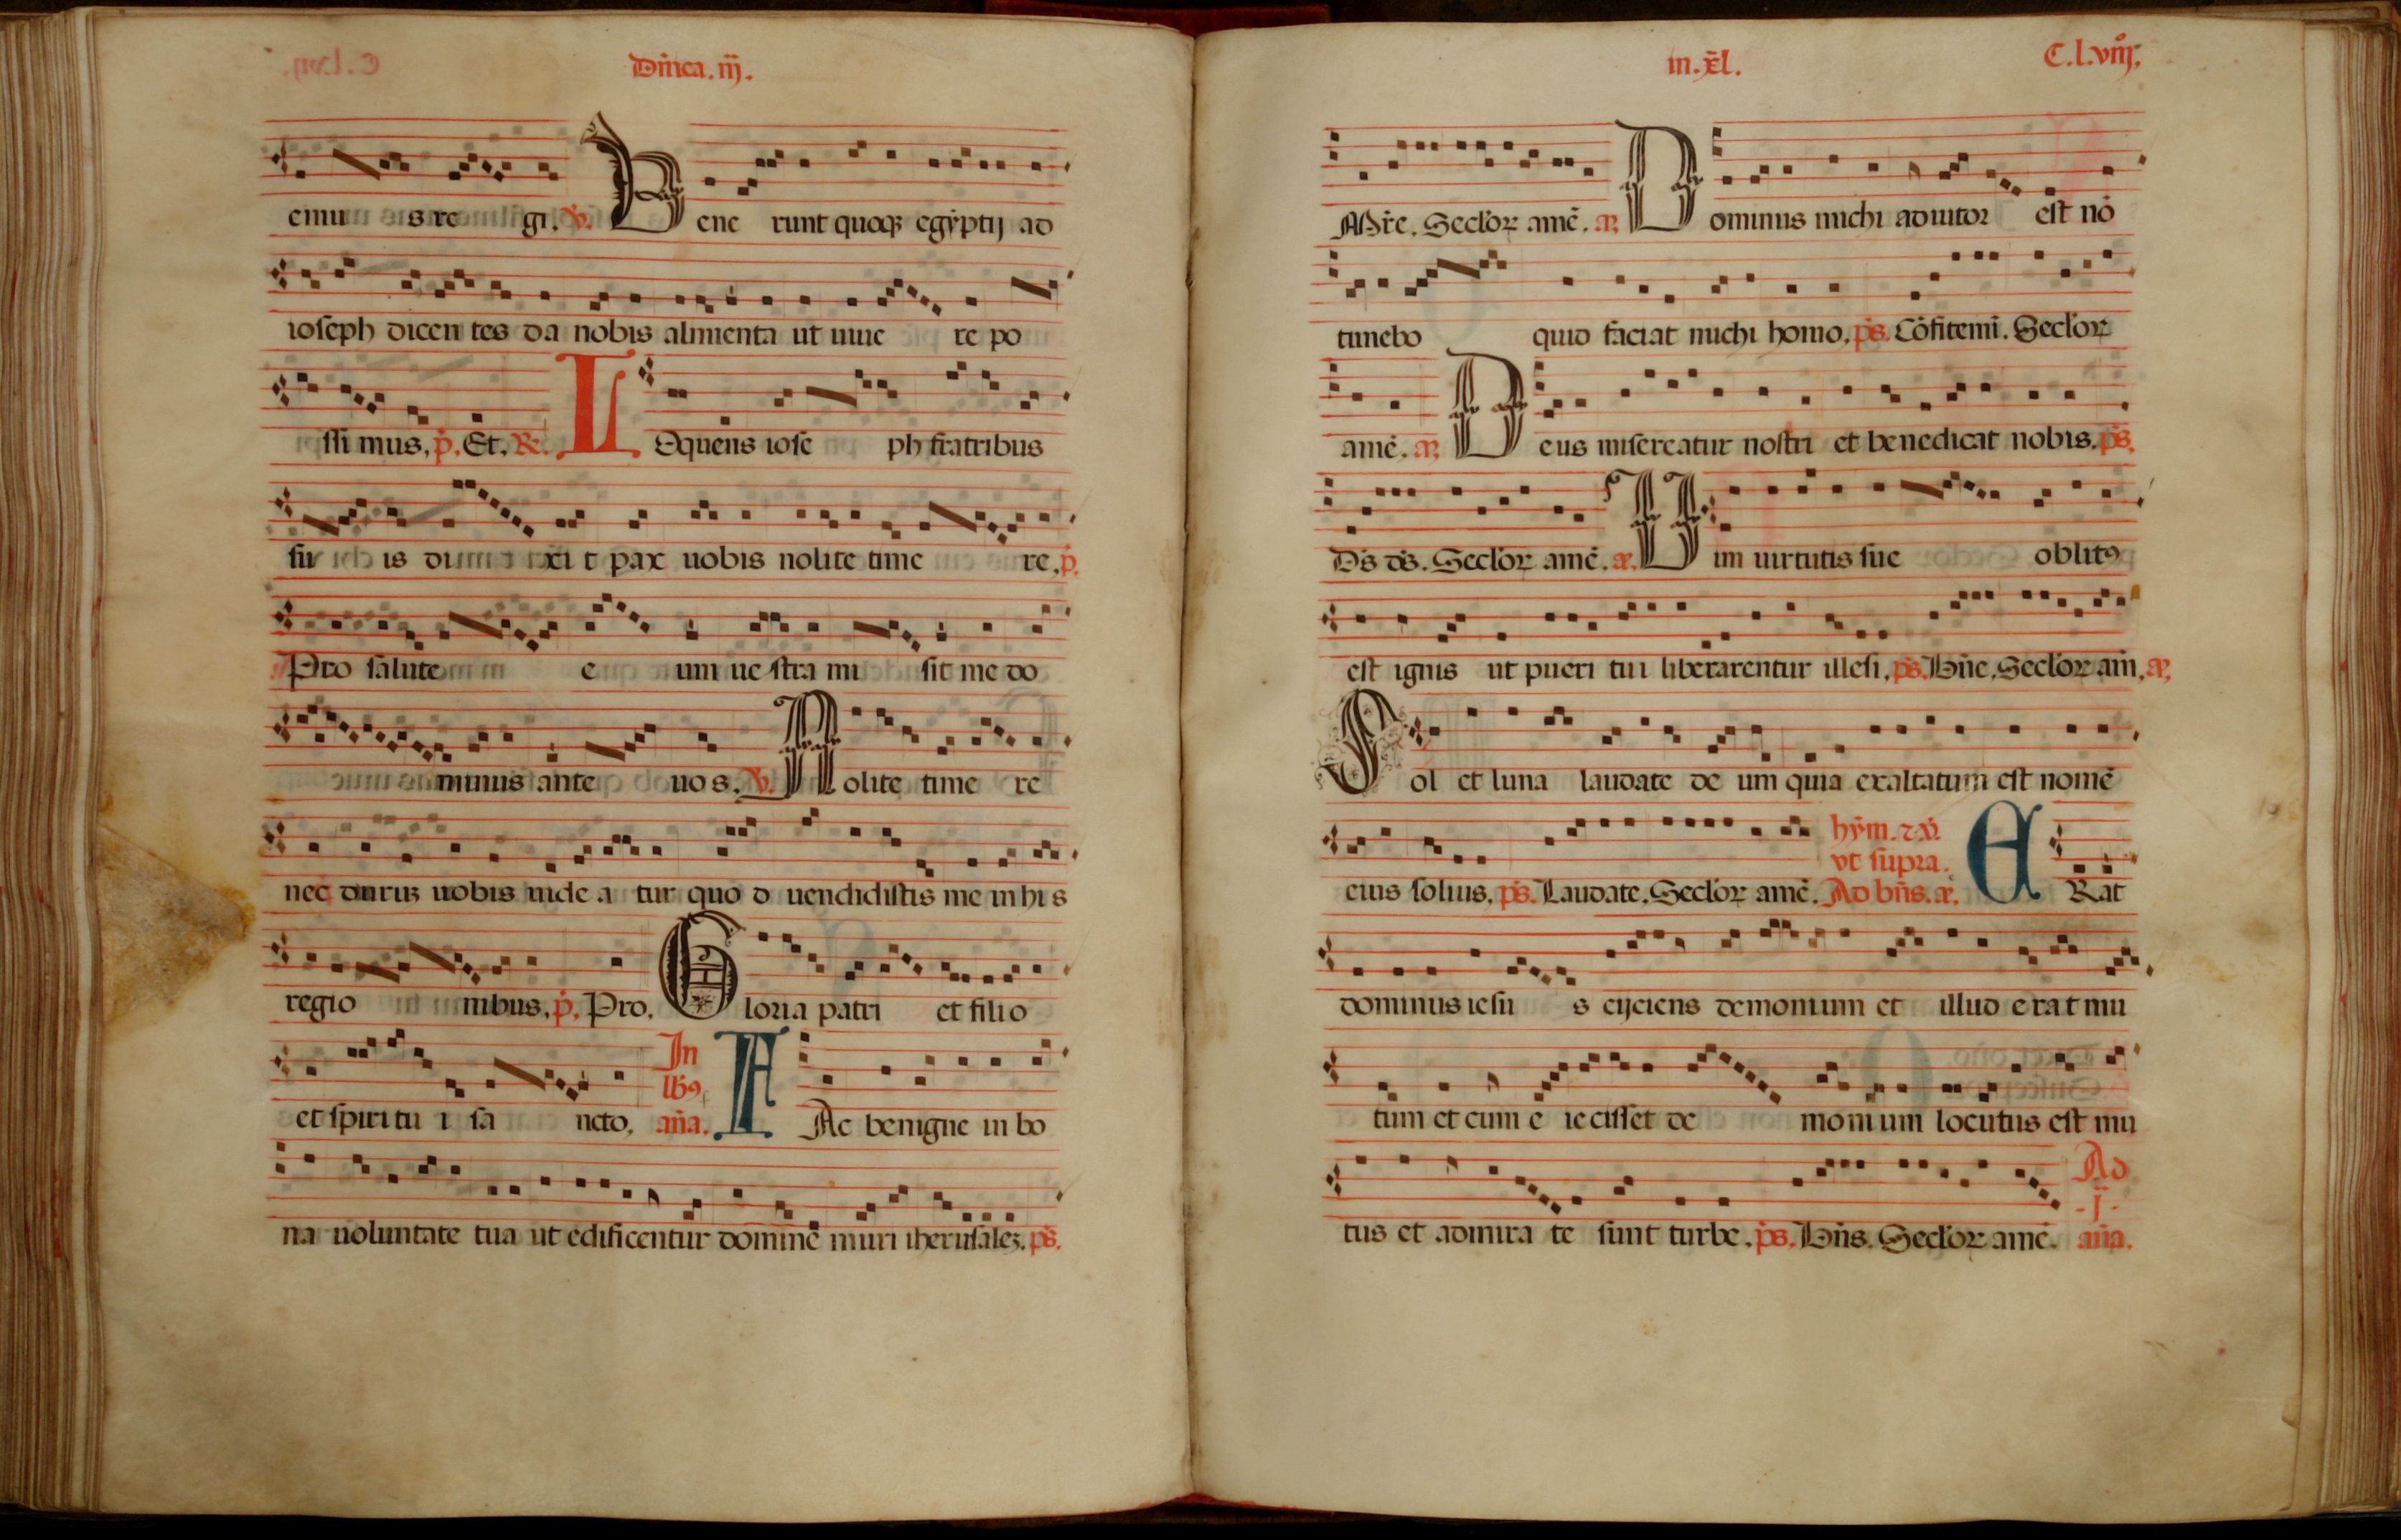 Dñica. iij.
emus regi. ℣. Uene runt quoqꝫ egyptij ad
ioseph dicen tes da nobis alimenta ut uiue re po
ssi mus. p̄. Et. ℞. L Oquens iose ph fratribus
su is di xi t pax uobis nolite time re. p̄.
Pro salute e um ue stra mi sit me do
minus ante uos. ℣. N olite time re
nec durum uobis uide a tur quo d uendidistis me in hi s
regio nibus. p̄. Pro. G loria patri et filio
et spiritu i sa ncto. In lb9. añа. F Ac benigne in bo
na uoluntate tua ut edificentur domine muri iherusaleꝫ. ps̄.
in. xl. C. l. viij.
Mr̄e. Seclor amē. a. D ominus michi adiutor est nō
timebo quid faciat michi homo. ps̄. Cōfitemī. Seclor
amē. a. D eus misereatur nostri et benedicat nobis. ps̄.
Ds̄ ds̄. Seclor amē. a. U im uirtutis sue oblit9
est ignis ut pueri tui liberarentur illesi. ps̄. Bn̄e. Seclor am̄. a.
S ol et luna laudate de um quia exaltatum est nomē
hym. ⁊ ℣.
vt supra.
eius solius. ps̄. Laudate. Seclor amē. Ad bn̄s. a. E Rat
dominus iesu s eijciens demonium et illud erat mu
tum et cum e iecisset de monium locutus est mu
tus et admira te sunt turbe. ps̄. Bn̄s. Seclor amē. Ad .I. añа.